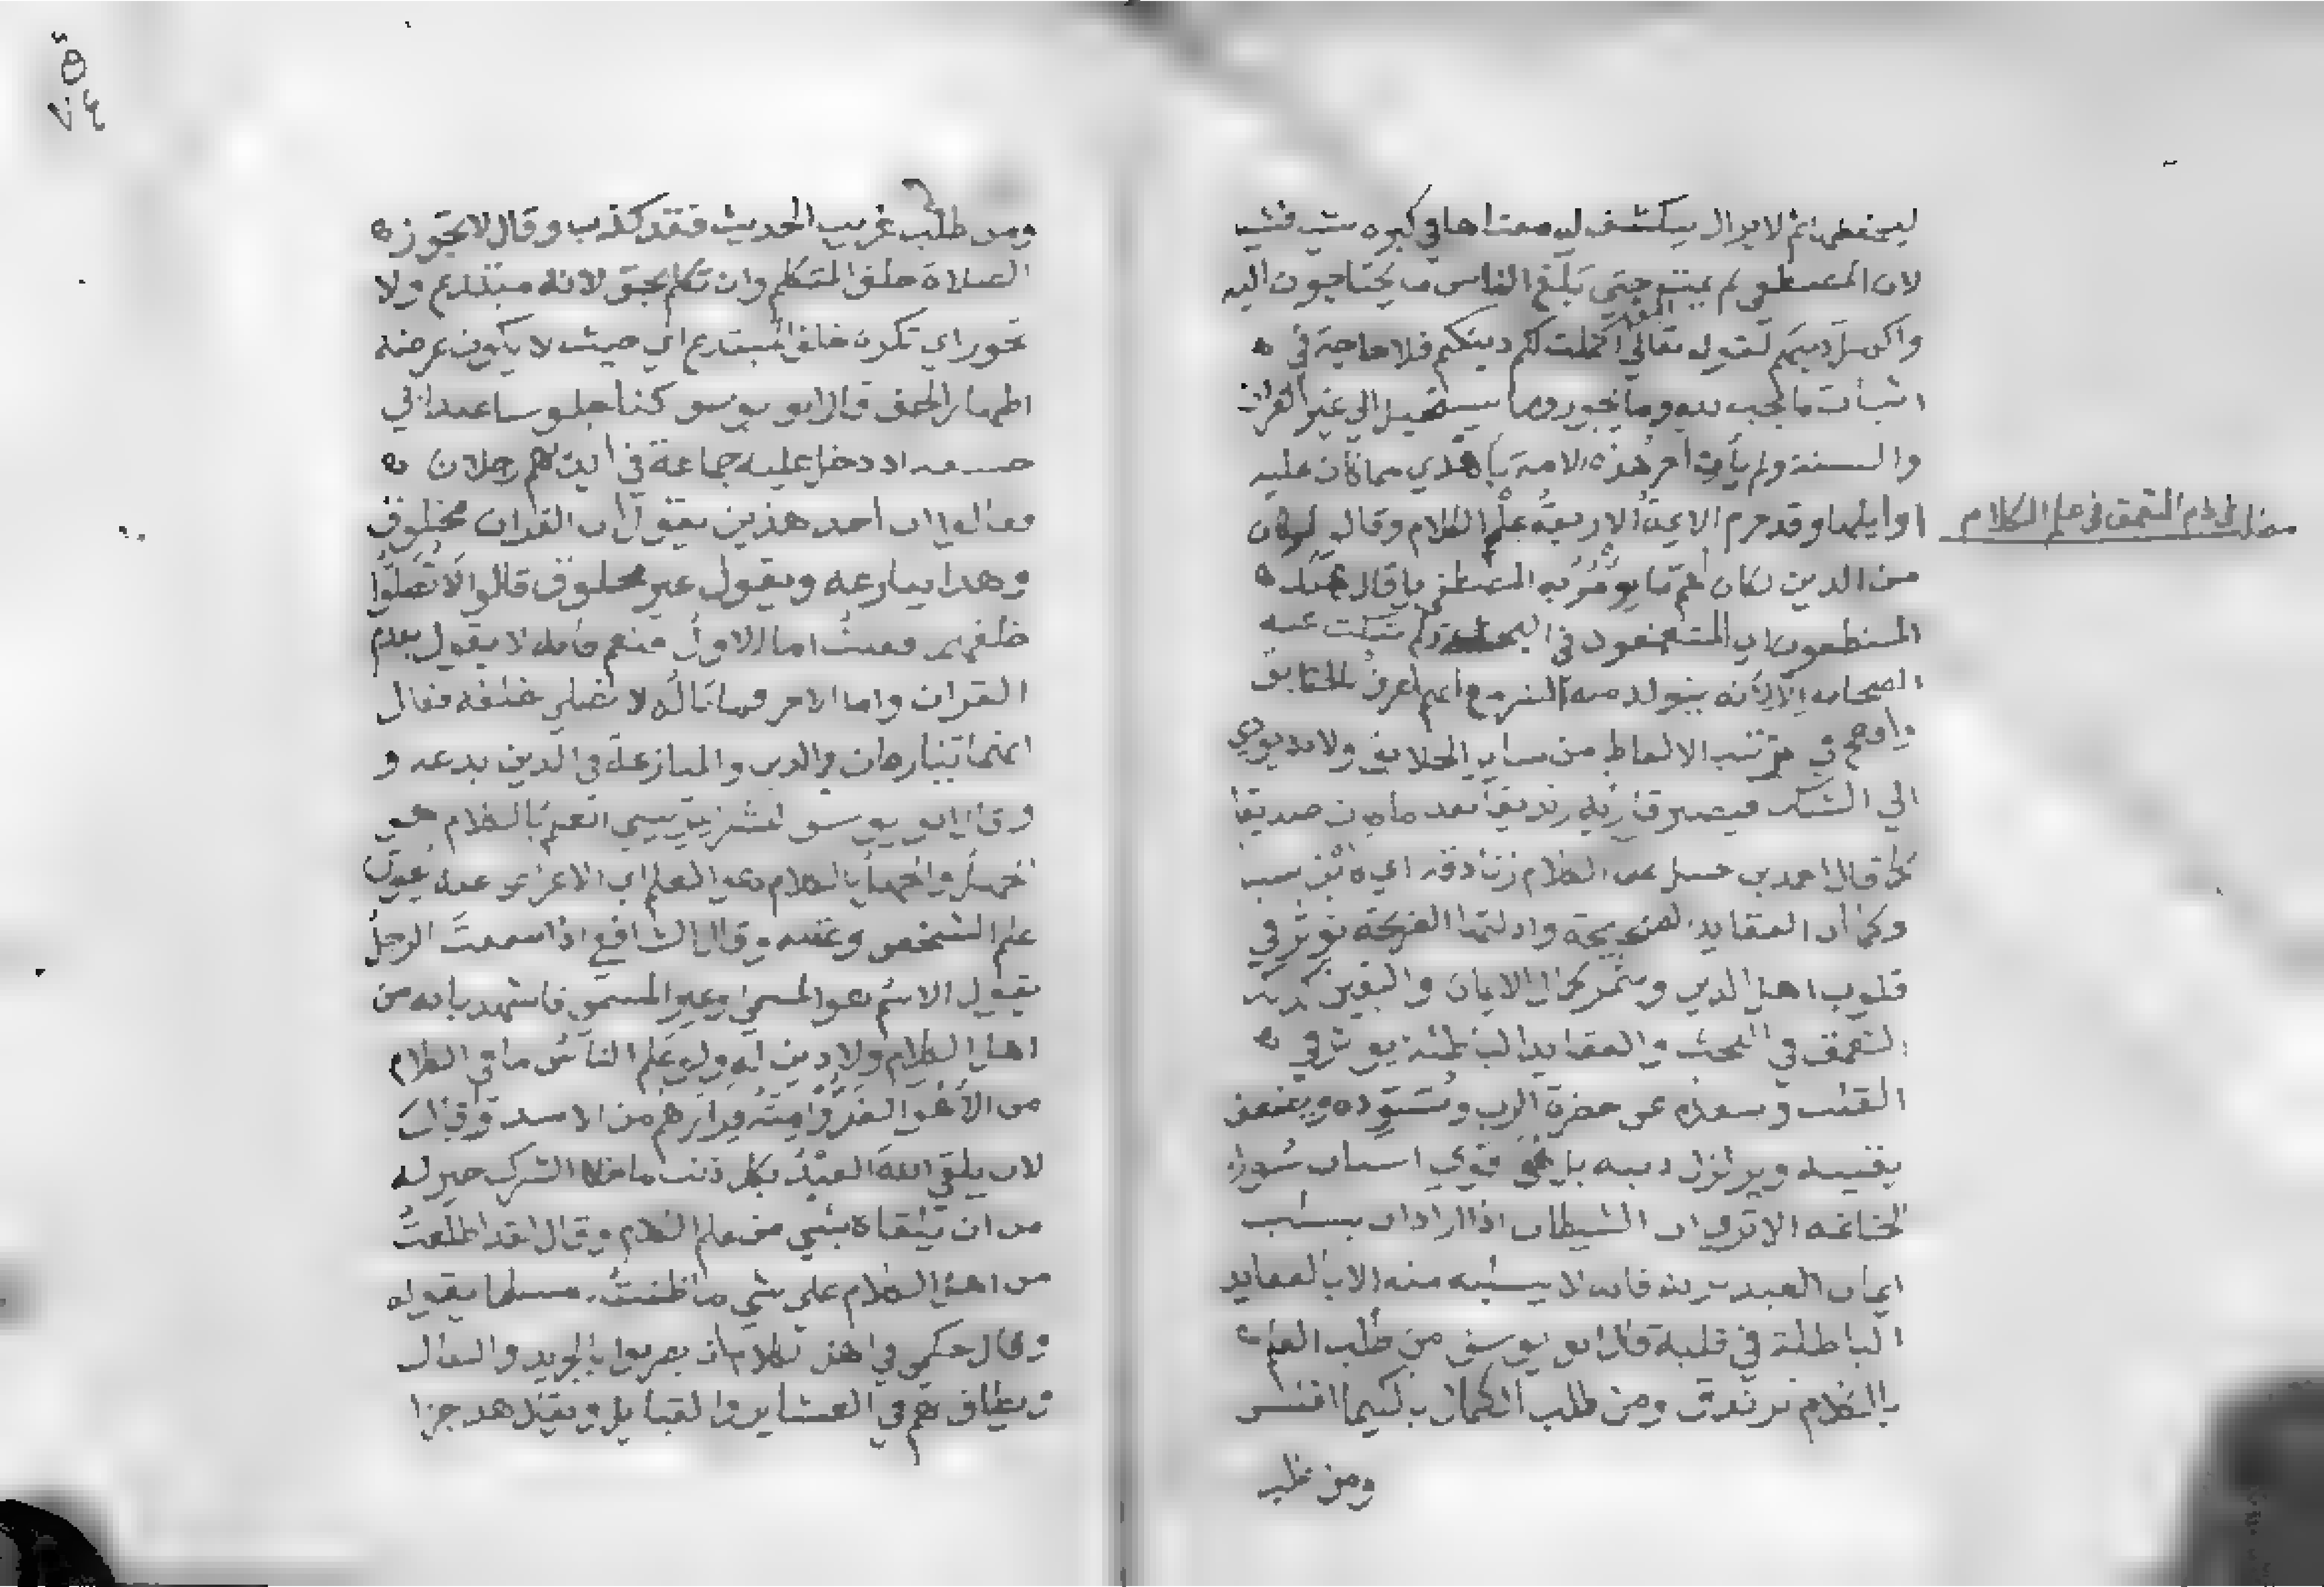 ليحفظه ثم لا يزال ينكشف له معناها في كبره شيئ فشيئ
لان المصطفي لم يمت حتي بلغ الناس ما يحتاجون اليه
واكمل دينهم لقوله تعالي اليوم اكملت لكم دينكم فلا حاجة في
اثبات ما يجب لله وما يجوز وما يستحيل الي غير القران
والسنة ولم يأت اخر هذه الامة باهدي مما كان عليه
اوايلها وقد حرم الايمة الاربعة علم الكلام وقال لو كان
من الدين لكان اهم ما يؤمر به المصطفي قال هلك
المتنطعون اي المتعمقون في البحث ولم يثبت عنه
الصحابه الا لانه يتولد منه الشر مع انهم اعرف بالحقايق
وافصح في ترتيب الالفاظ من ساير الخلايق ولانه يودي
الي الشك فيصير قاريه زنديقا بعد ما كان صديقا
كما قال احمد بن حنبل علماء الكلام زنادقه اي
وكما ان العقايد الصحيحة وادلتها الصريحة توثر في
قلوب اهل الدين وتثمر كمال الايمان واليقين كذلك
التعمق في البحث والعقايد الباطلة يوثر في
القلب ويبعده عن حضرة الرب ويسوده ويضعف
يقينه ويزلزل دينه بل هو اقوي اسباب سوء
الخاتمه الا تري ان الشيطان اذا اراد ان يسلب
ايمان العبد بربه فانه لا يسلبه منه الا بالعقايد
الباطلة في قلبه قال ابو يوسف من طلب العلم
بالكلام تزندق ومن طلب المال بالكيميا افلس
ومن طلب
فصل في ذم التعمق في علم الكلام
ومن طلب غريب الحديث فقد كذب وقال لا تجوز
الصلاة خلف المتكلم وان تكلم بحق لانه مبتدع ولا
تجوز اي تكره خلف المبتدع اي حيث لا يكون غرضه
اظهار الحق قال ابو يوسف كنا جلوسا عند ابي
حنيفه اذ دخل عليه جماعة في ايديهم رجلان
فقالوا ان احد هذين يقول ان القران مخلوق
وهذا ينازعه ويقول غير مخلوق قال لا تصلوا
خلفهما فقلت اما الاول فنعم فانه لا يقول بقدم
القران واما الاخر فما باله لا نصلي خلفه فقال
انهما تنازعان في الدين والمنازعة في الدين بدعه و
وقال ابو يوسف لبشر المريسي العلم بالكلام هو
الجهل والجهل بالكلام هو العلم اي الاعراض عنه يقوي
علم الشخص وعقله وقال الشافعي اذا سمعت الرجل
يقول الاسم هو المسمي او غير المسمي فاشهد بانه من
اهل الكلام ولا دين له ولو علم الناس ما في الكلام
من الاهوا لفروا منه فرارهم من الاسد وقال
لان يلقي الله العبد بكل ذنب ما خلا الشرك خير له
من ان يلقاه بشيي من علم الكلام وقال لقد اطلعت
من اهل الكلام علي شي ما ظننت مسلما يقوله
وقال حكمي في اهل الكلام ان يضربوا بالجريد والنعال
ويطاف بهم في العشاير والقبايل ويقال هذا جزا